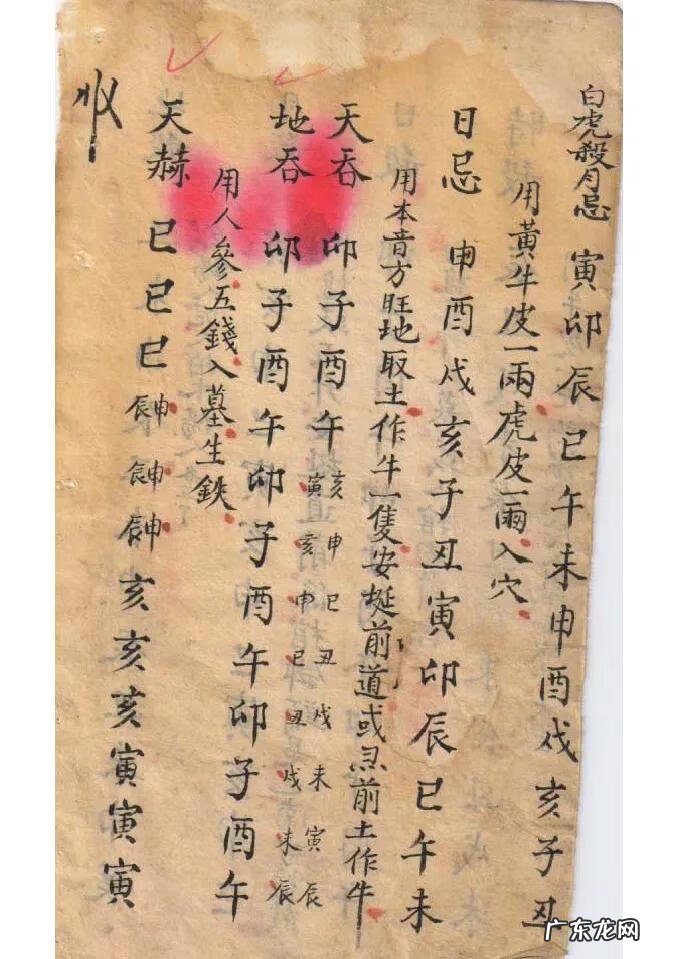 白虎殺月忌 寅卯辰巳午未申酉戌亥子丑
用黃牛皮一兩虎皮一兩入穴
日忌 申酉戌亥子丑寅卯辰巳午未
用本音方旺地取土作牛一隻安埏前道或前土作牛
天吞 卯子酉午
亥申巳丑戌未寅辰
寅亥申巳丑戌未辰
地吞 卯子酉午卯子酉午卯子酉午
用人參五錢入墓生鉄
天赫 巳巳巳 辰申 辰申 辰申 亥亥亥寅寅寅
广东龙网